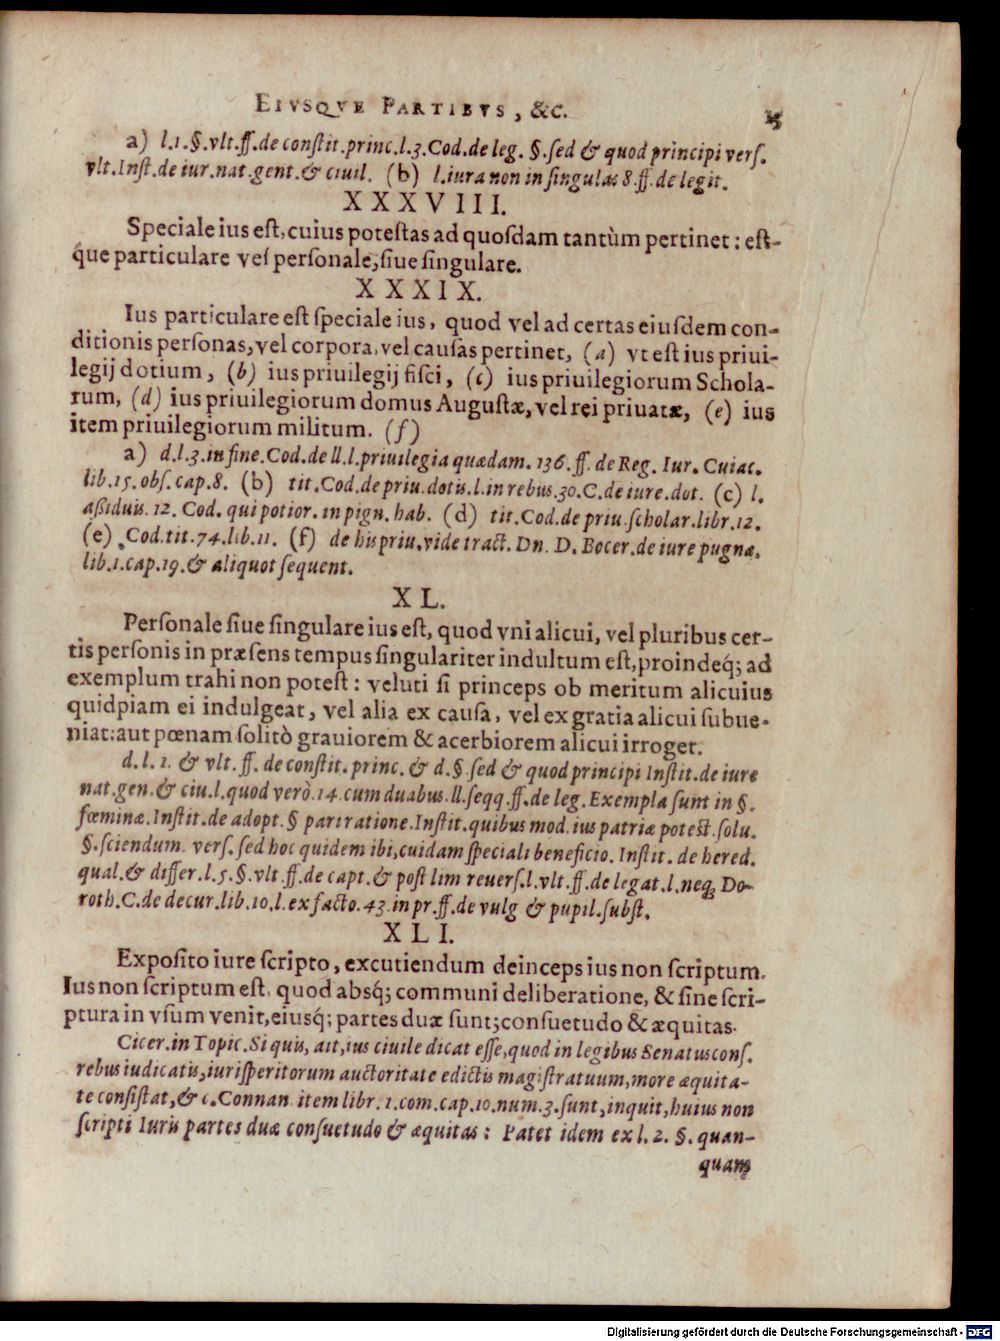 EIVSQVE PARTIBVS, &C. 15
a) l.1.§.vlt.ff.de conſtit.princ.l.3.Cod.de leg. §.ſed & quod principi verſ.
vlt.Inſt.de iur.nat.gent.& ciuil. (b) l.iura non in ſingulas 8.ff.de legit.
XXXVIII.
Speciale ius eſt, cuius poteſtas ad quoſdam tantùm pertinet: eſt-
que particulare vel perſonale, ſiue ſingulare.
XXXIX.
Ius particulare eſt ſpeciale ius, quod vel ad certas eiuſdem con-
ditionis perſonas, vel corpora, vel cauſas pertinet, (a) vt eſt ius priui-
legij dotium, (b) ius priuilegij fiſci, (c) ius priuilegiorum Schola-
rum, (d) ius priuilegiorum domus Auguſtæ, vel rei priuatæ, (e) ius
item priuilegiorum militum. (f)
a) d.l.3.in fine.Cod.de ll.l.priuilegia quædam. 136. ff. de Reg. Iur. Cuiac.
lib.15.obſ.cap.8. (b) tit.Cod.de priu.dotis.l.in rebus.30.C.de iure.dot. (c) l.
aßiduis. 12. Cod. qui potior. in pign. hab. (d) tit.Cod.de priu.ſcholar.libr.12.
(e) Cod.tit.74.lib.11. (f) de his priu.vide tract. Dn. D. Bocer.de iure pugnæ.
lib.1.cap.19.& aliquot ſequent.
XL.
Perſonale ſiue ſingulare ius eſt, quod vni alicui, vel pluribus cer-
tis perſonis in præſens tempus ſingulariter indultum eſt, proindeq́; ad
exemplum trahi non poteſt: veluti ſi princeps ob meritum alicuius
quidpiam ei indulgeat, vel alia ex cauſa, vel ex gratia alicui ſubue-
niat: aut pœnam ſolitò grauiorem & acerbiorem alicui irroget.
d. l. 1. & vlt. ff. de conſtit. princ. & d. § ſed & quod principi Inſtit. de iure
nat.gen.& ciu.l.quod verò.14.cum duabus.ll.ſeqq.ff.de leg. Exempla ſunt in §.
fœminæ.Inſtit.de adopt. § pari ratione.Inſtit.quibus mod.ius patriæ poteſt.ſolu.
§.ſciendum. verſ. ſed hoc quidem ibi, cuidam ſpeciali beneficio. Inſtit. de hered.
qual.& differ.l.5.§.vlt.ff.de capt.& poſt lim reuerſ.l.vlt.ff.de legat.l.neq; Do-
roth.C.de decur.lib.10.l.ex facto.43.in pr.ff.de vulg & pupil.ſubſt.
XLI.
Expoſito iure ſcripto, excutiendum deinceps ius non ſcriptum.
Ius non ſcriptum eſt, quod absq́; communi deliberatione, & ſine ſcri-
ptura in vſum venit, eiusq́; partes duæ ſunt; conſuetudo & æquitas.
Cicer.in Topic.Si quis, ait, ius ciuile dicat eſſe, quod in legibus Senatusconſ.
rebus iudicatis, iuriſperitorum auctoritate edictis magiſtratuum, more æquita-
te conſiſtat, & c. Connan item libr. 1. com.cap.10.num.3.ſunt, inquit, huius non
ſcripti Iuris partes duæ conſuetudo & æquitas: Patet idem ex l. 2. §. quan-
quam
Digitalisierung gefördert durch die Deutsche Forschungsgemeinschaft - DFG